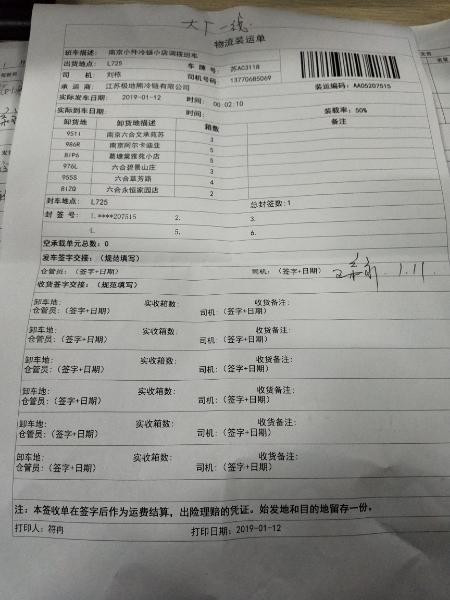 大厂一线
物流装运单
班车描述: 南京小件冷链小店调拨班车
出货地点: L725 车 牌 号: 苏AC3118
司 机: 刘栋 司机号码: 13770685069
承 运 商: 江苏极地熊冷链有限公司 装运编码: AA05207515
实际发车日期: 2019-01-12 时间: 00:02:10
实际到车日期: 时间: 装载率: 50%
卸货地 卸货地描述 箱数 备注
951I 南京六合文承苑苏 3
986R 南京阿尔卡迪亚 5
BIP6 葛塘棠雅苑小店 5
976L 六合碧景山庄 3
955S 六合草芳路 4
BIZQ 六合永恒家园店 2
封车地点: L725 总封签数:1
封 签 号: 1.****207515 2. 3.
4. 5. 6.
空承载单元总数: 0
发车签字交接: (规范填写)
仓管员: (签字+日期) 司机: (签字+日期) 1.11.
收货签字交接: (规范填写)
卸车地: 实收箱数: 收货备注:
仓管员: (签字+日期) 司机: (签字+日期)
卸车地: 实收箱数: 收货备注:
仓管员: (签字+日期) 司机: (签字+日期)
卸车地: 实收箱数: 收货备注:
仓管员: (签字+日期) 司机: (签字+日期)
卸车地: 实收箱数: 收货备注:
仓管员: (签字+日期) 司机: (签字+日期)
卸车地: 实收箱数: 收货备注:
仓管员: (签字+日期) 司机: (签字+日期)
卸车地: 实收箱数: 收货备注:
仓管员: (签字+日期) 司机: (签字+日期)
注: 本签收单在签字后作为运费结算, 出险理赔的凭证。始发地和目的地留存一份。
打印人: 符冉 打印日期: 2019-01-12